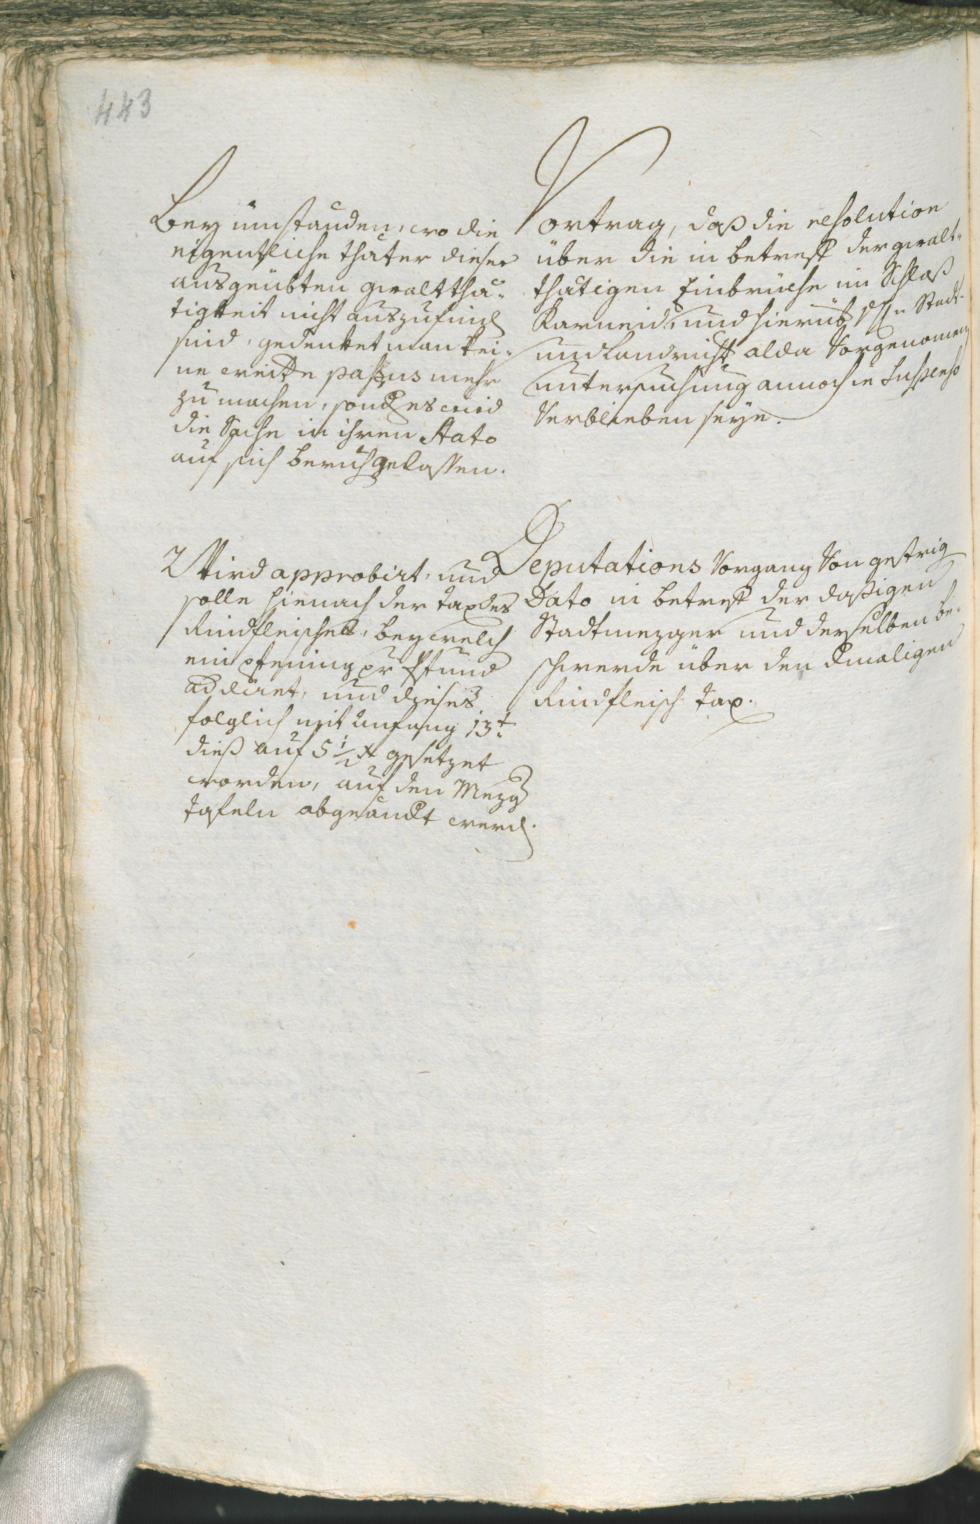 443
Bey umständen, wo die
eigentliche thäter dieser
ausgeübten gewaltthä-
tigkeit nicht auszufind
sind, gedenket man kei-
ne weitere passus mehr
zu machen, sond es wird
die Sache in ihren Stato
auf sich beruh gelassen.
Vortrag, daß die resolution
über die in betreff der gewalt-
thätigen Einbrüche im Schloß
Karneid, und hierüb Stadt-
und Landricht alda Vorgenomen
untersuchung annoch in Suspenso
Verblieben seye.
Wird approbirt, und
solle hienach der tax des
Rindfleisches, bey welch
ein pfening pr Pfund
addiret, und dieses
folglich mit anfang 13t
dieß auf 5 1/2 x gesetzet
worden, auf den Mezg
tafeln abgeändt werd.
Deputations Vorgang Von gestrig
Dato in betreff der dasigen
Stadtmezger und derselben be-
schwerde über den dmaligen
Rindfleisch tax.